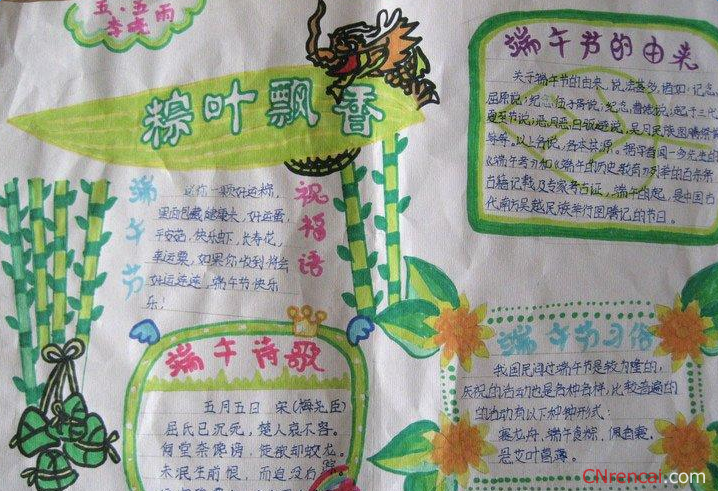 五.五
李晓雨
粽叶飘香
端午节
祝福语
送你一颗好运粽,
里面包藏健康大,好运蛋,
平安菇,快乐虾,长寿花,
幸运票,如果你收到将会
好运连连,端午节快乐
乐!
端午节的由来
关于端午节的由来,说法甚多,诸如:记念
屈原说;纪念伍子胥说;纪念曹娥说;起于三代
夏至节说;恶月恶日驱避说,吴月民族图腾祭
等等。以上各说,各本其源。据学者闻一多先生的
《端午考》和《端午的历史教育》列举的百余条
古籍记载及专家考古证,端午的起,是中国古
代南方吴越民族举行图腾记的节日。
端午诗歌
五月五日 宋(梅尧臣)
屈氏已沉死,楚人哀不容。
何尝奈谗谤,徒欲却蛟龙。
未泯生前恨,而追没后踪
端午节习俗
我国民间过端午节是较为隆的,
庆祝的活动也是各种各样,比较普遍的
的活动有以下种种形式:
赛龙舟,端午食粽,佩香囊,
悬艾叶菖蒲。
CNrencai.com